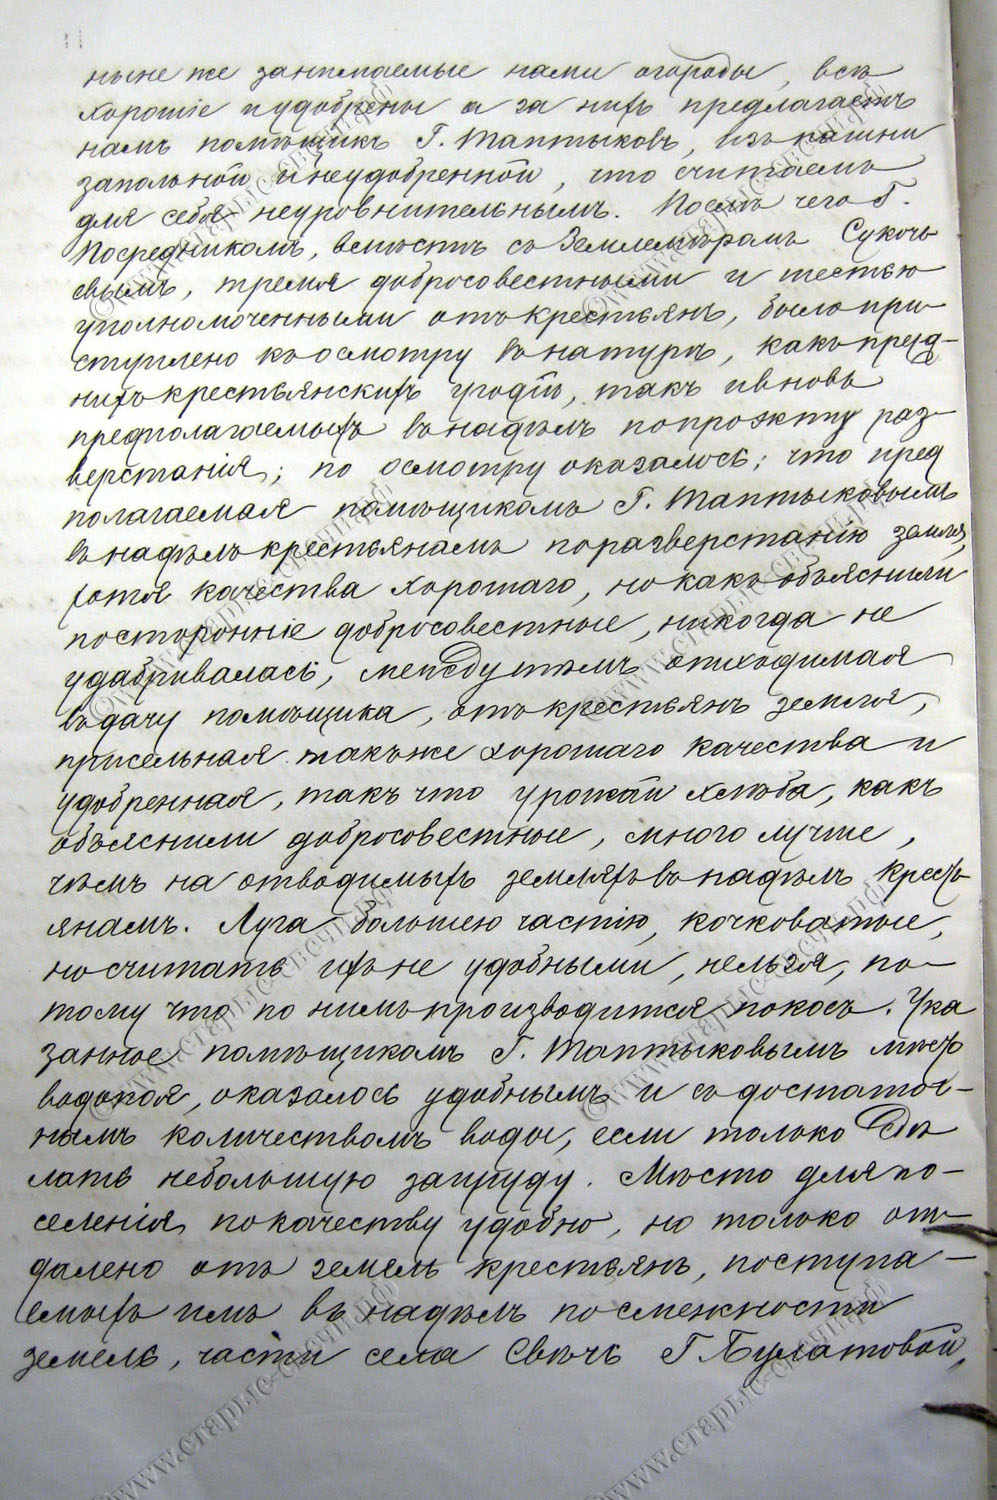 ныне же занимаемые нами огороды, все
хорошіе и удобрены а за нихъ предлагаетъ
намъ помѣщикъ Г. Таптыковъ, изъ пашни
запольной и неудобренной, что считаемъ
для себя неуровнительнымъ. Послѣ чего Г.
Посредникомъ, вмѣстѣ съ Землемѣромъ Сукочо
свымъ, тремя добросовестными и шестью
уполномоченными отъ крестьянъ, было при-
ступлено къ осмотру въ натурѣ, какъ преж-
нихъ крестьянскихъ угодій, такъ и вновь
предполагаемыхъ въ надѣлъ по проэкту раз-
верстанія; по осмотру оказалось; что пред
полагаемая помѣщикомъ Г. Таптыковымъ
въ надѣлъ крестьянамъ по разверстанію земля,
хотя качества хорошаго, но какъ объяснили
посторонніе добросовестные, никогда не
удабривалась, между тѣмъ отходимая
въ дачу помѣщика, отъ крестьянъ земля,
присельная такъже хорошаго качества и
удобренная, такъ что урожай хлѣба, какъ
объяснили добросовестные, много лучше,
чѣмъ на отводимыхъ земляхъ въ надѣлъ крестъ
янамъ. Луга большею частію, кочковатые,
но считать ихъ не удобными, нельзя, по-
тому что по нимъ производится покосъ. Ука
занное помѣщикомъ Г. Таптыковымъ мѣсто
водопоя, оказалось удобнымъ и съ достаточ-
нымъ количествомъ воды, если только дѣ
лать небольшую запруду. Мѣсто для по-
селенія, по качеству удобно, но только от-
далено отъ земель крестьянъ, поступа-
емыхъ имъ въ надѣлъ по смежности
земель, части села Свѣчь Г. Булатовой,
www.старые-свечи.рф